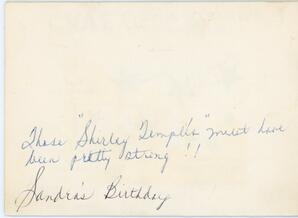 Those "Shirley Temples" must have
been pretty strong !!
Sandra's Birthday